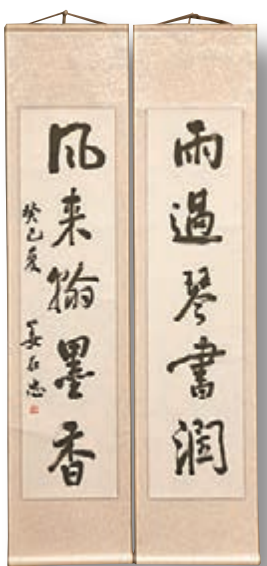 雨過琴書潤
风来翰墨香
癸巳夏
姜在忠